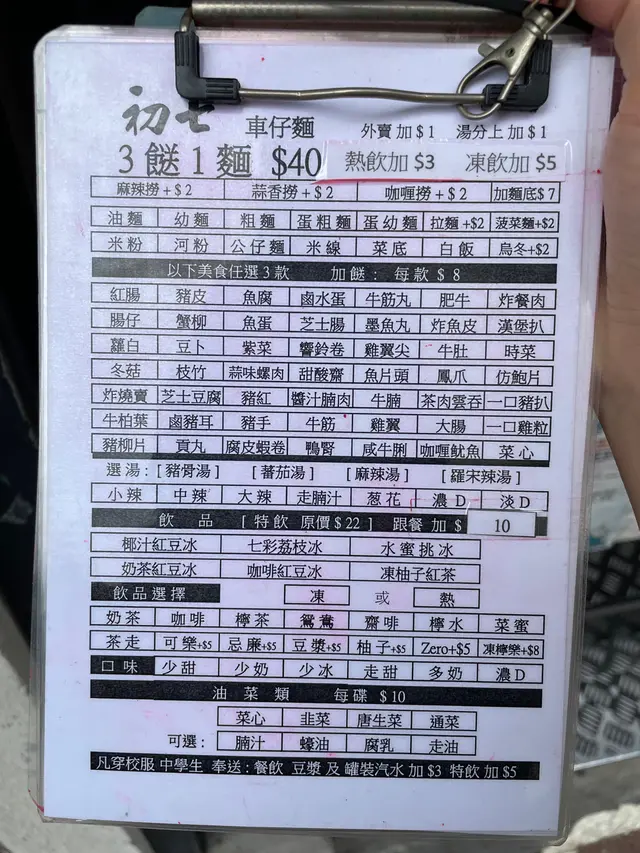 初七 車仔麵 外賣加$1 湯分上加$1
3餸1麵 $40 熱飲加$3 凍飲加$5
麻辣撈+$2 蒜香撈+$2 咖喱撈+$2 加麵底$7
油麵 幼麵 粗麵 蛋粗麵 蛋幼麵 拉麵+$2 菠菜麵+$2
米粉 河粉 公仔麵 米線 菜底 白飯 烏冬+$2
以下美食任選3款 加餸: 每款$8
紅腸 豬皮 魚腐 鹵水蛋 牛筋丸 肥牛 炸餐肉
腸仔 蟹柳 魚蛋 芝士腸 墨魚丸 炸魚皮 漢堡扒
蘿白 豆卜 紫菜 響鈴卷 雞翼尖 牛肚 時菜
冬菇 枝竹 蒜味螺肉 甜酸齋 魚片頭 鳳爪 仿鮑片
炸燒賣 芝士豆腐 豬紅 醬汁腩肉 牛腩 茶肉雲吞 一口豬扒
牛柏葉 鹵豬耳 豬手 牛筋 雞翼 大腸 一口雞粒
豬柳片 貢丸 腐皮蝦卷 鴨腎 咸牛脷 咖喱魷魚 菜心
選湯:[豬骨湯] [蕃茄湯] [麻辣湯] [羅宋辣湯]
小辣 中辣 大辣 走腩汁 葱花 濃D 淡D
飲品 [特飲 原價$22] 跟餐加$ 10
椰汁紅豆冰 七彩荔枝冰 水蜜挑冰
奶茶紅豆冰 咖啡紅豆冰 凍柚子紅茶
飲品選擇 凍 或 熱
奶茶 咖啡 檸茶 鴛鴦 齋啡 檸水 菜蜜
茶走 可樂+$5 忌廉+$5 豆漿+$5 柚子+$5 Zero+$5 凍檸樂+$8
口味 少甜 少奶 少冰 走甜 多奶 濃D
油菜類 每碟$10
菜心 韭菜 唐生菜 通菜
可選: 腩汁 蠔油 腐乳 走油
凡穿校服 中學生 奉送:餐飲 豆漿 及 罐裝汽水 加$3 特飲加$5